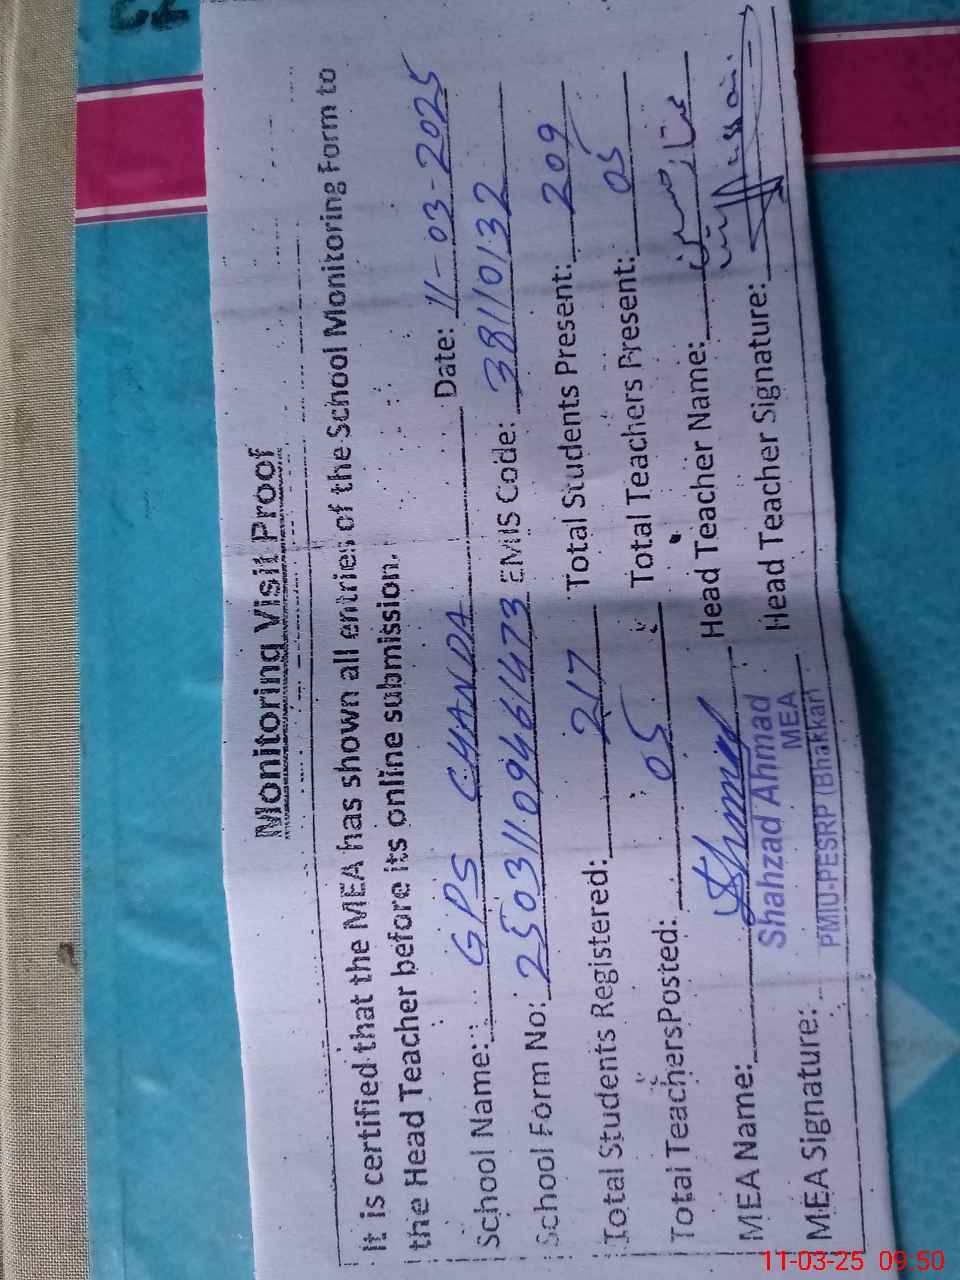 Monitoring Visit Proof
It is certified that the MEA has shown all entries of the School Monitoring Form to
the Head Teacher before its online submission.
School Name: GPS CHANDA Date: 11-03-2025
School Form No: 25031109461473 EMIS Code: 38110132
Total Students Registered: 217 Total Students Present: 209
Total Teachers Posted: 05 Total Teachers Present: 05
MEA Name: Head Teacher Name:
Shahzad Ahmad
MEA
MEA Signature: Head Teacher Signature:
PMIU-PESRP (Bhakkar)
11-03-25 09:50